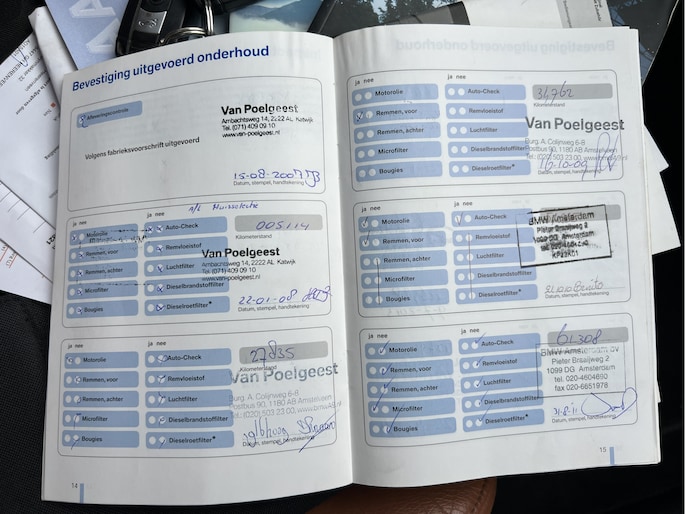 Bevestiging uitgevoerd onderhoud
Afleveringscontrole
Volgens fabrieksvoorschrift uitgevoerd
Van Poelgeest
Ambachtsweg 14, 2222 AL Katwijk
Tel. (071) 409 09 10
www.van-poelgeest.nl
15-08-2007
Datum, stempel, handtekening
ja nee
ja nee
Motorolie
Auto-Check
005114
Kilometerstand
Remmen, voor
Remvloeistof
Remmen, achter
Luchtfilter
Microfilter
Dieselbrandstoffilter
Bougies
Dieselroetfilter*
Van Poelgeest
Ambachtsweg 14, 2222 AL Katwijk
Tel. (071) 409 09 10
www.van-poelgeest.nl
22-01-08
Datum, stempel, handtekening
ja nee
ja nee
Motorolie
Auto-Check
27835
Kilometerstand
Remmen, voor
Remvloeistof
Remmen, achter
Luchtfilter
Microfilter
Dieselbrandstoffilter
Bougies
Dieselroetfilter*
Van Poelgeest
Burg. A. Colijnweg 6-8
Postbus 90, 1180 AB Amstelveen
Tel.: (020) 503 23 00
Datum, stempel, handtekening
14
ja nee
ja nee
Motorolie
Auto-Check
36762
Kilometerstand
Remmen, voor
Remvloeistof
Remmen, achter
Luchtfilter
Microfilter
Dieselbrandstoffilter
Bougies
Dieselroetfilter*
Van Poelgeest
Burg. A. Colijnweg 6-8
Postbus 90, 1180 AB Amstelveen
Tel.: (020) 503 23 00
Datum, stempel, handtekening
ja nee
ja nee
Motorolie
Auto-Check
Remmen, voor
Remvloeistof
Remmen, achter
Luchtfilter
Microfilter
Dieselbrandstoffilter
Bougies
Dieselroetfilter*
BMW Amsterdam
Pieter Braaijweg 2
1099 DG Amsterdam
Datum, stempel, handtekening
ja nee
ja nee
Motorolie
Auto-Check
61308
Remmen, voor
Remvloeistof
Remmen, achter
Luchtfilter
Microfilter
Dieselbrandstoffilter
Bougies
Dieselroetfilter*
BMW Amsterdam bv
Pieter Braaijweg 2
1099 DG Amsterdam
tel. 020-4604690
fax 020-6651978
31-8-11
Datum, stempel, handtekening
15